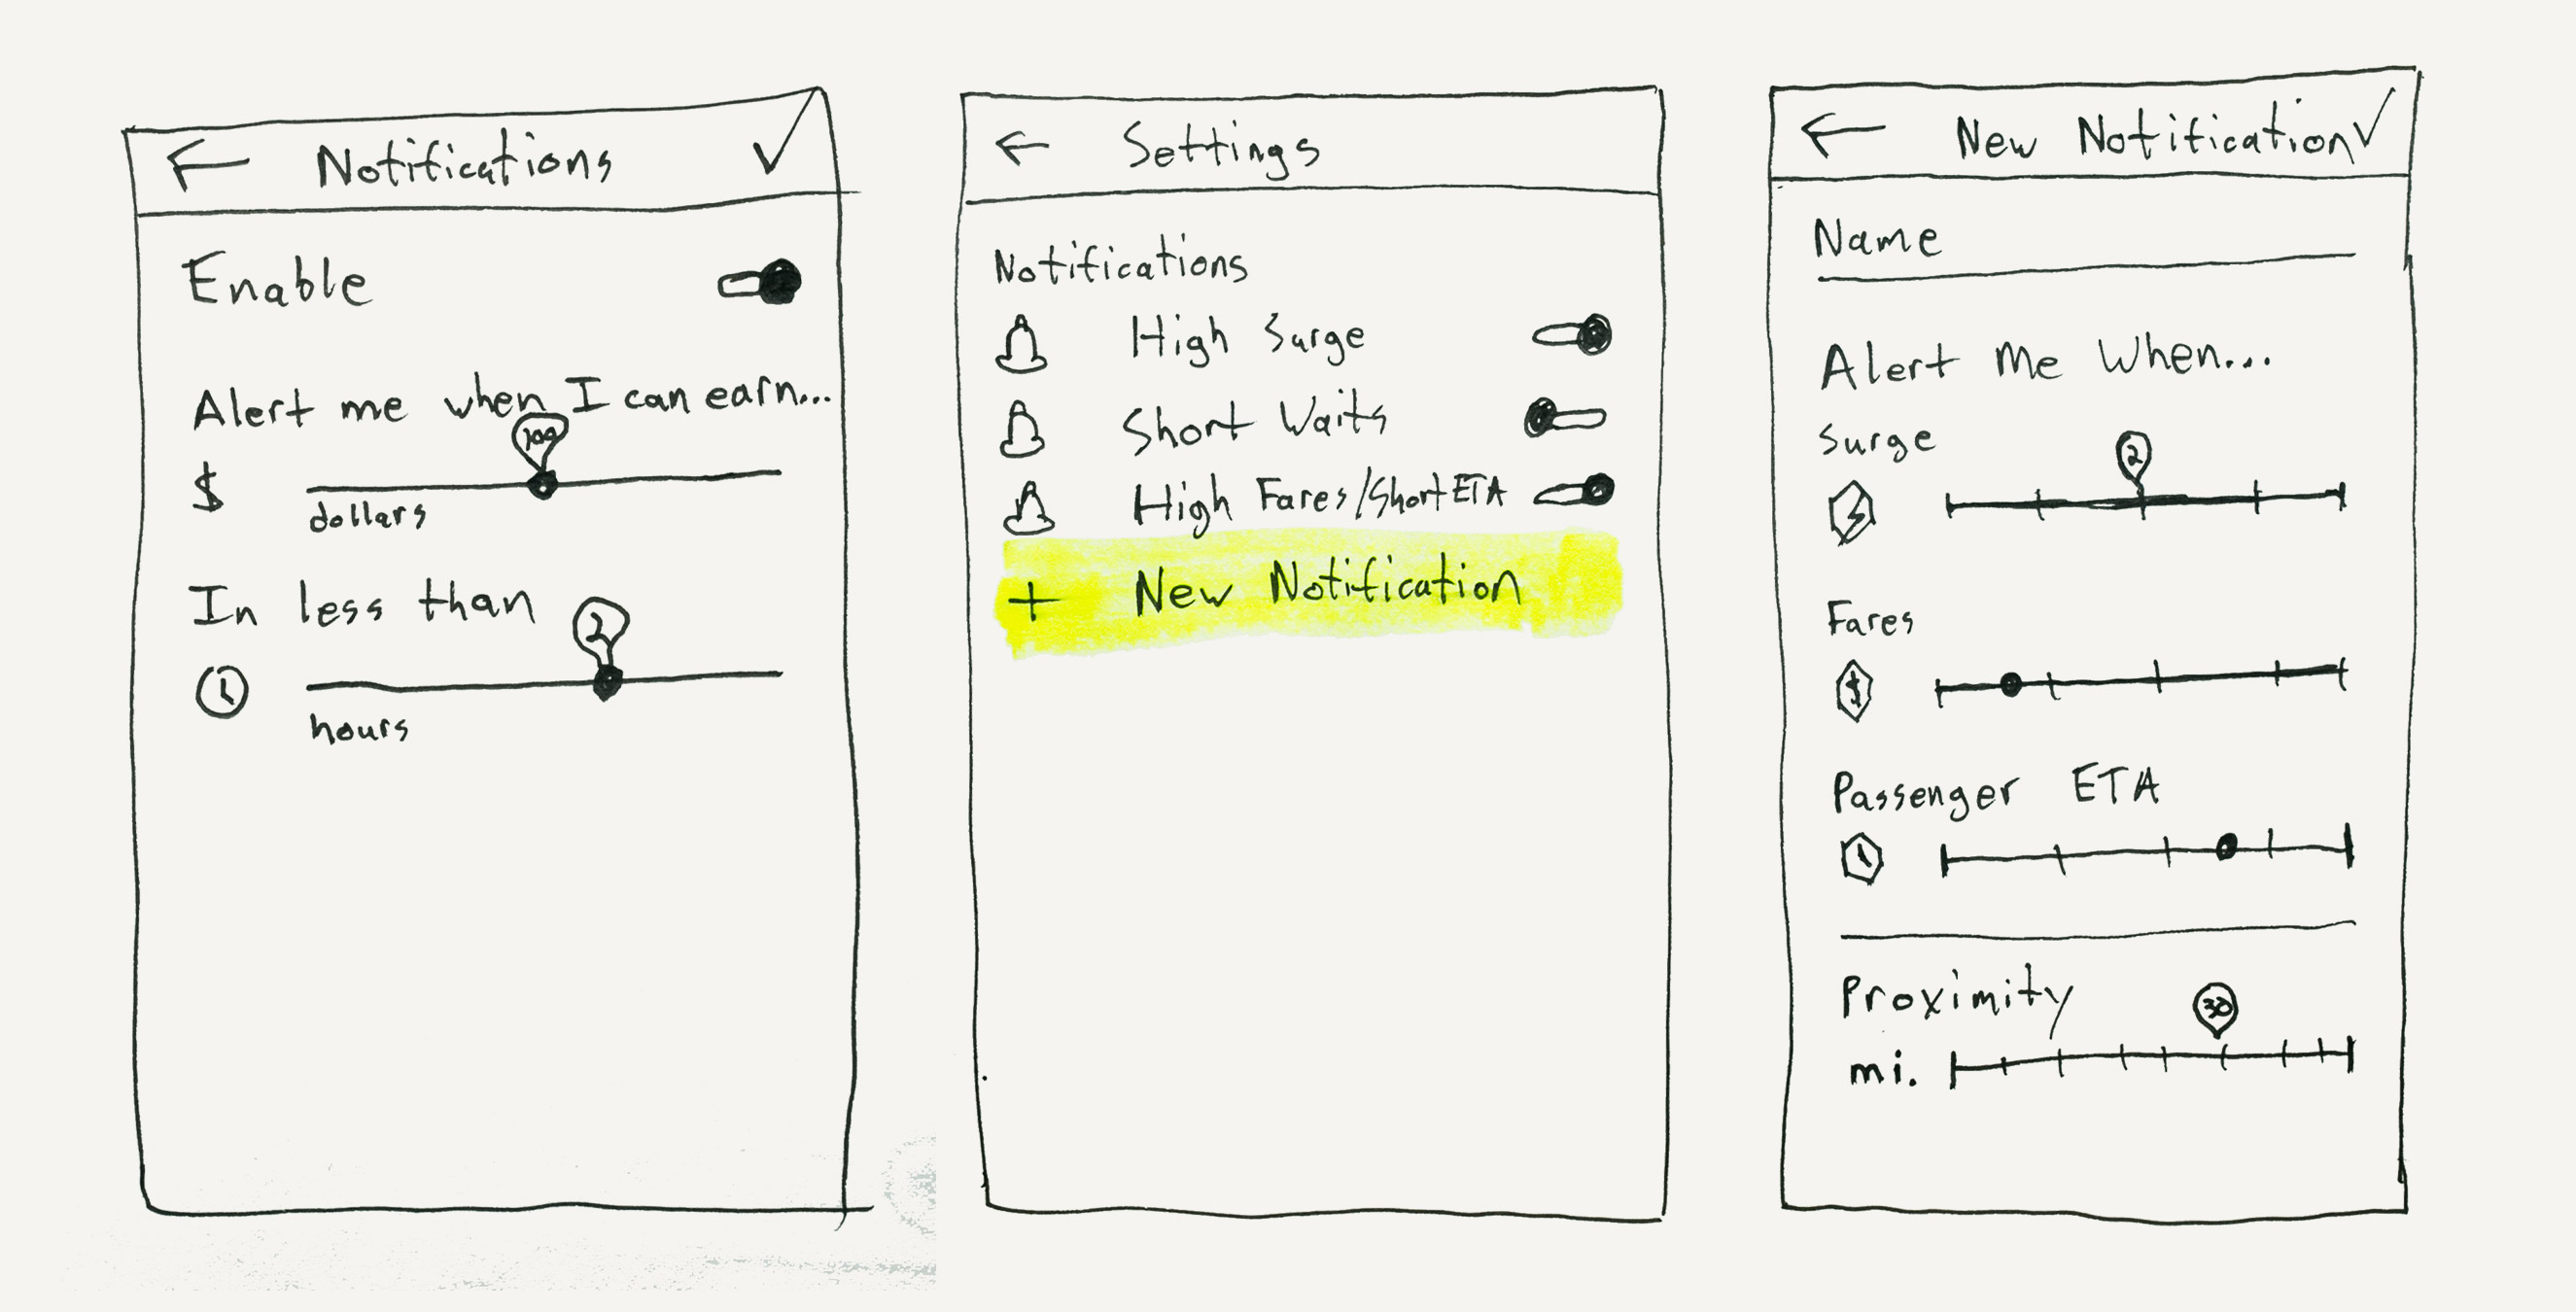 Notifications
Enable
Alert me when I can earn...
100
$
dollars
In less than
2
hours
Settings
Notifications
High Surge
Short Waits
High Fares/Short ETA
+ New Notification
New Notification
Name
Alert Me When...
Surge
2
Fares
$
Passenger ETA
Proximity
30
mi.